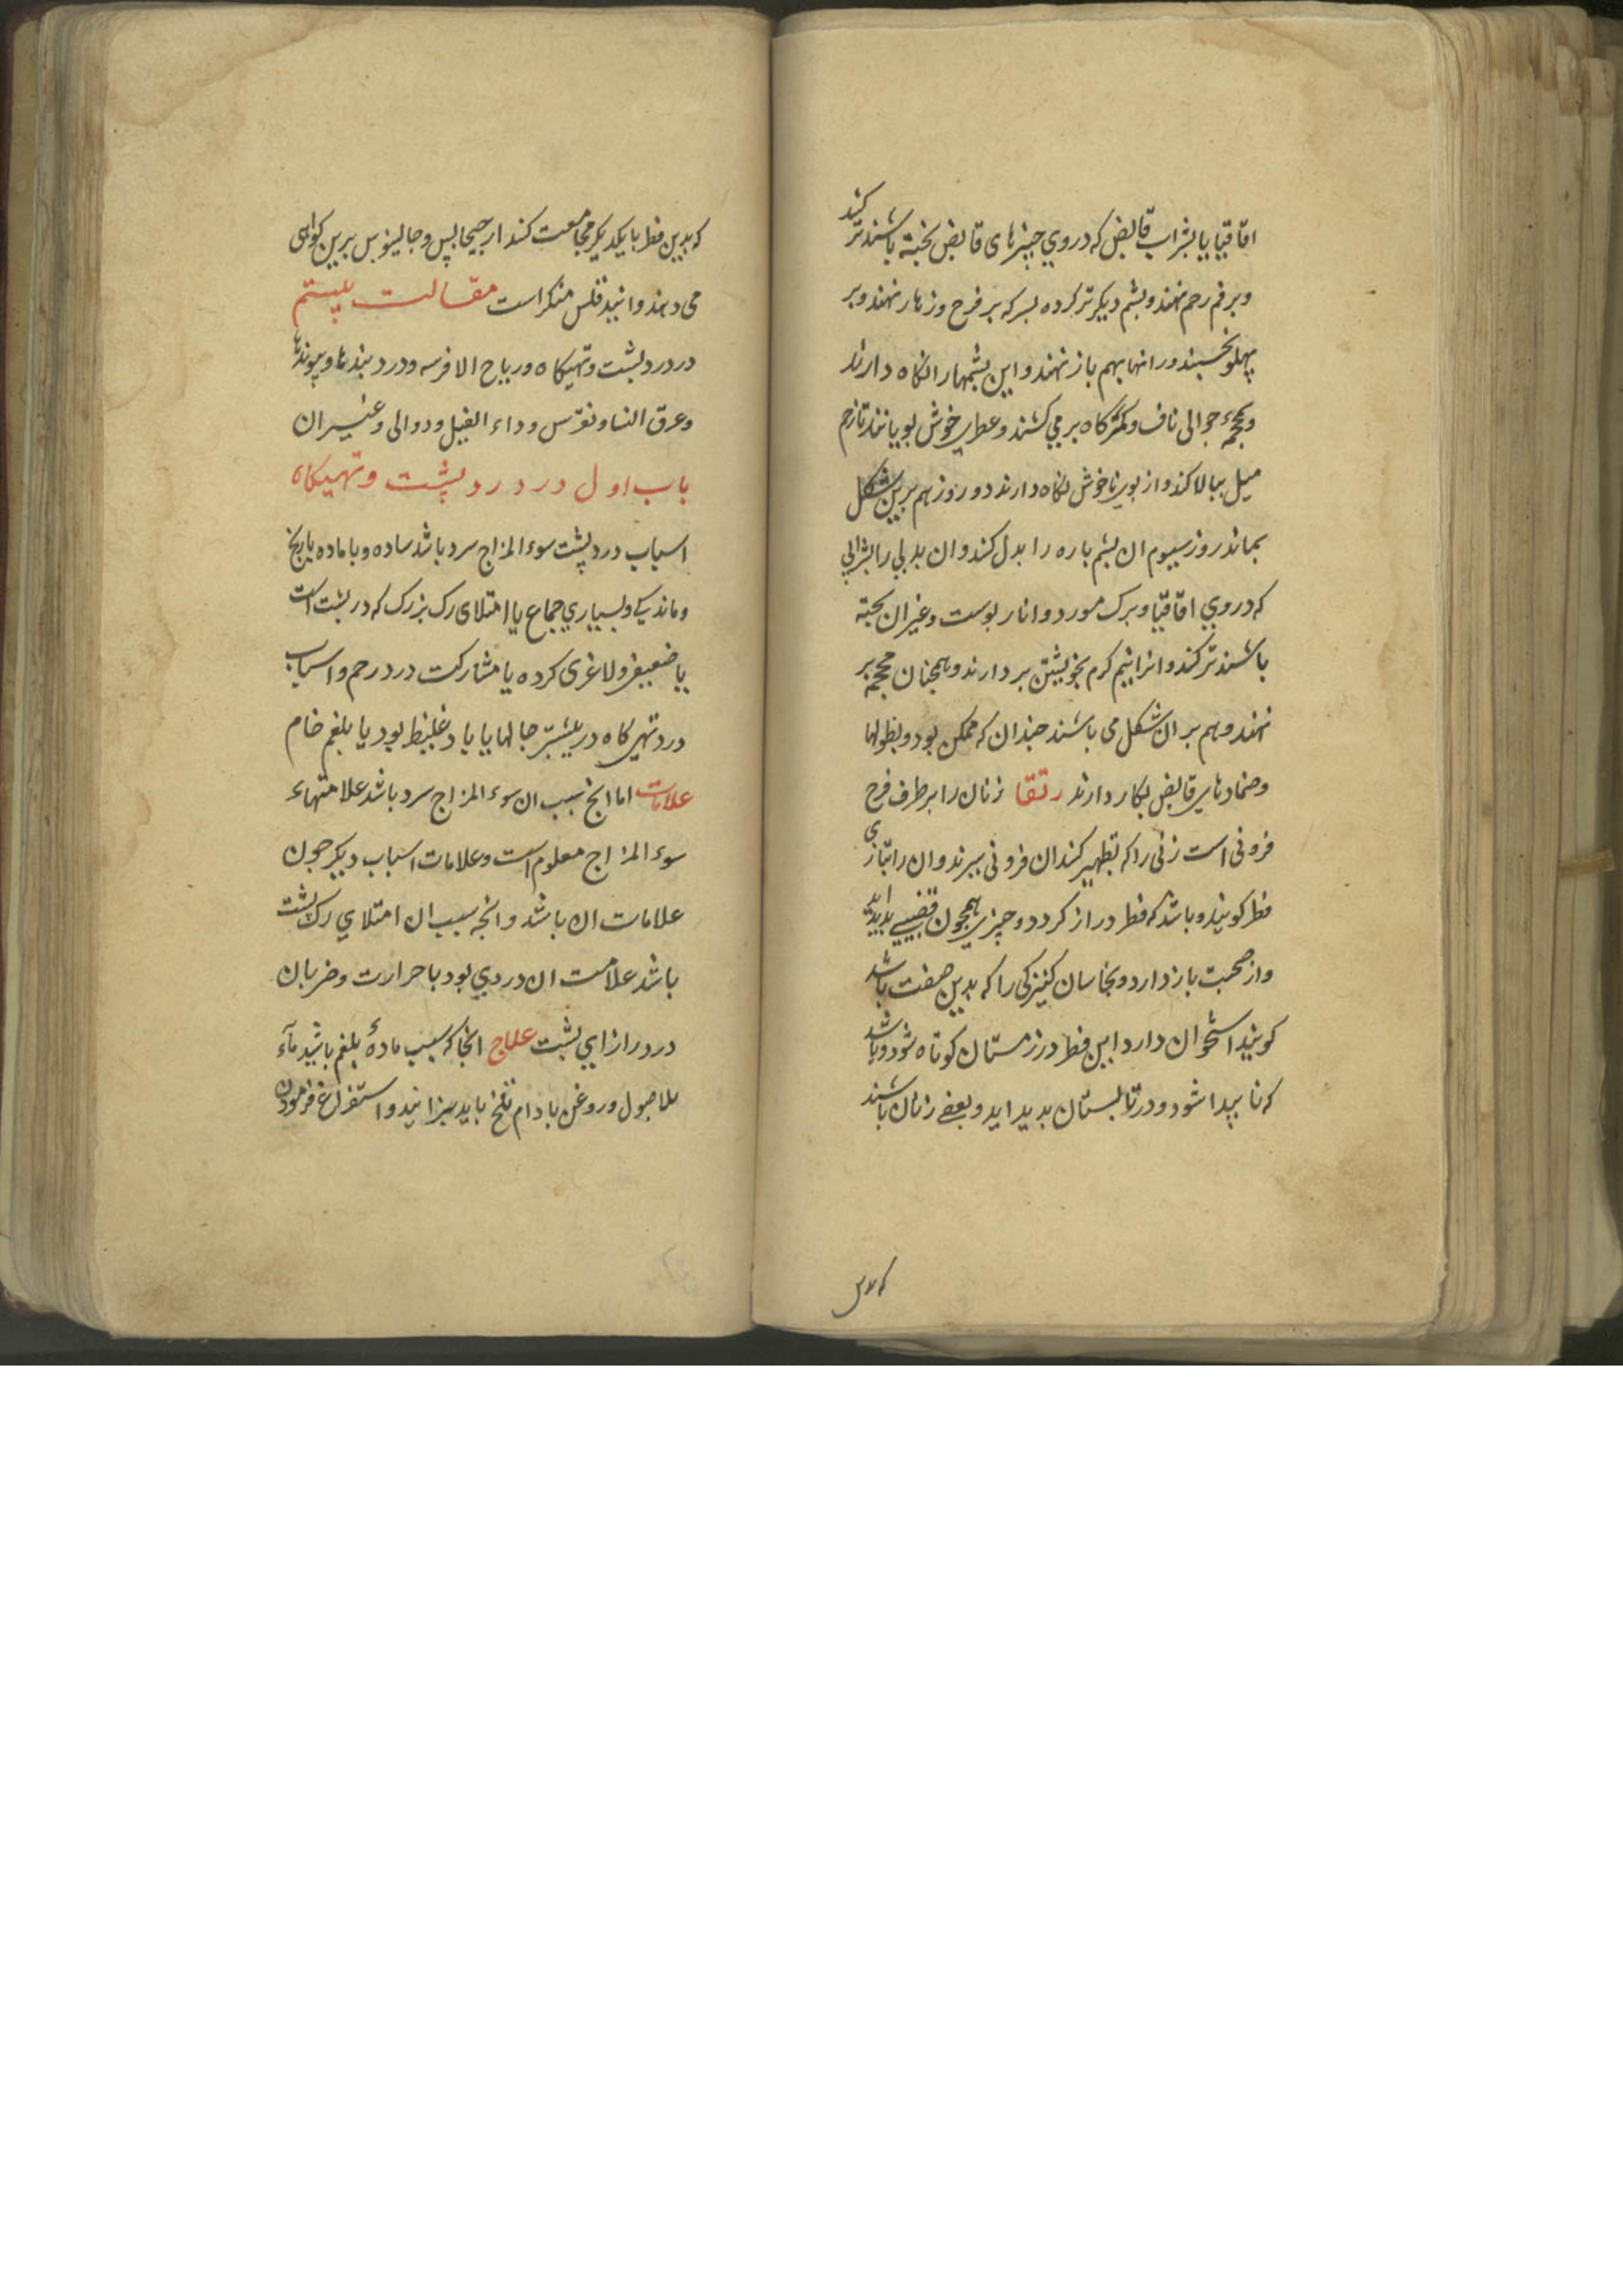 اقاقیا یا بشراب قابض که دروی چیزهای قابض پخته باشند تر کنند
و برفم رحم نهند و پشم دیکر تر کرده بسرکه بر فرج و زهار نهند و بر
پهلو نخسبند و رانها بهم باز نهند و این پشمها را نکاه دارند
و محجمه حوالی ناف و کمرکاه برمی کشند و عطرهای خوش بویانند تا رحم
میل ببالا کند و از بوی ناخوش نکاه دارند دو روز هم برین شکل
بماند روز سیوم ان پشم باره را بدل کنند و ان بدلی را بشرابی
که دروی اقاقیا و برک مورد و انار بوست و غیر ان پخته
باشند تر کند و انرا نیم کرم بخویشتن بر دارند و همچنان محجمه بر
نهند و هم بر ان شکل می باشند چندان که ممکن بود و نطولها
و ضمادهای قابض بکار دارند رتقا زنان را بر طرف فرج
فزونی است زنی را که تطهیر کنند ان فزونی ببرند و ان را بتازی
فطر کویند و باشد که فطر دراز کردد و چیزی همچون قضیبی پدید اید
و از صحبت باز دارد و نخاسان کنیزکی را که بدین صفت باشد
کویند استخوان دارد و این فطر در زمستان کوتاه شود و باشد
که نا پیدا شود و در تابستان پدید اید و بعضی زنان باشند
که بدین
که بدین فطر با یکدیکر مجامعت کنند ارجیجانس و جالینوس برین کواهی
می دهند و انیدقلس منکر است مقالت بیستم
در درد پشت و تهیکاه و ریاح الافرسه و درد بندها و پیوندها
و عرق النسا و نقرس و داء الفیل و دوالی و غیر ان
باب اول در درد پشت و تهیکاه
اسباب درد پشت سوء المزاج سرد باشد ساده و با ماده یا رنج
و ماندکی و بسیاری جماع یا امتلای رک بزرک که در پشت است
یا ضعیفی و لاغری کرده یا مشارکت درد رحم و اسباب
درد تهی کاه در بیشتر حالها یا باد غلیظ بود یا بلغم خام
علامات اما انچ سبب ان سوء المزاج سرد باشد علامتهاء
سوء المزاج معلوم است و علامات اسباب دیکر چون
علامات ان باشد و انچه سبب ان امتلای رک پشت
باشد علامت ان دردی بود با حرارت و ضربان
در درازای پشت علاج انجا که سبب ماده بلغم باشد ماء
الاصول و روغن بادام تلخ باید پزانید و استفراغ فرمودن